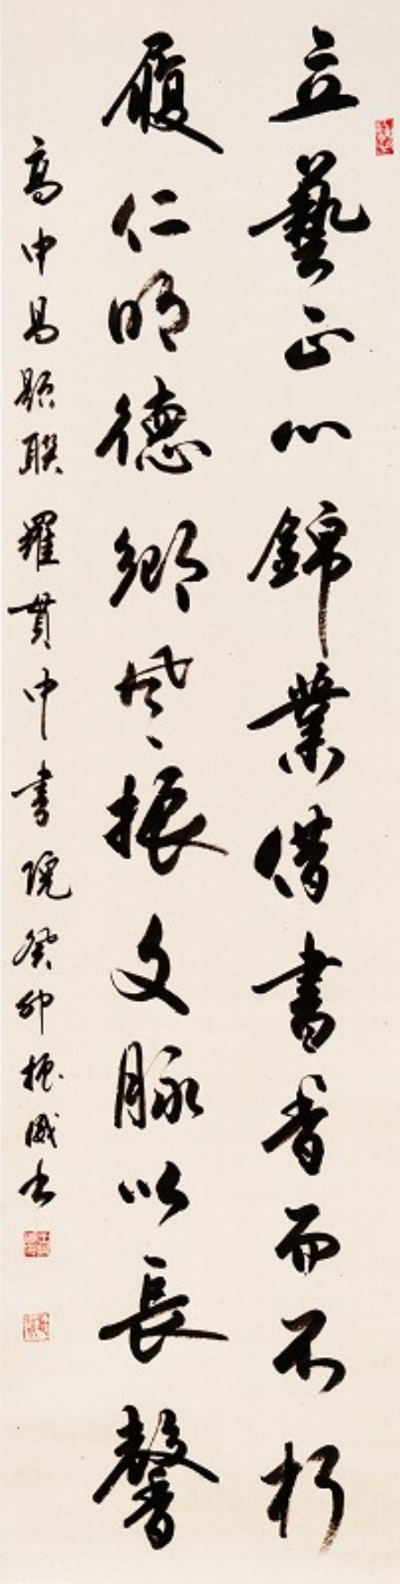 立藝正心錦業借書香而不朽
履仁明德鄉風振文脉以長馨
高中昌題聯羅貫中書院癸卯振威书